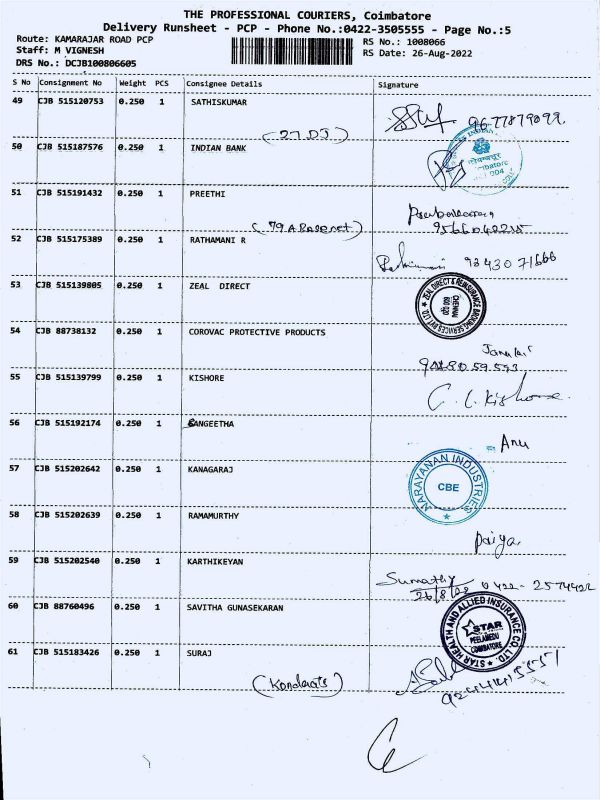 THE PROFESSIONAL COURIERS, Coimbatore
Delivery Runsheet - PCP - Phone No.:0422-3505555 - Page No.:5
Route: KAMARAJAR ROAD PCP
RS No.: 1008066
Staff: M VIGNESH
RS Date: 26-Aug-2022
DRS No.: DCJB100806605
S No Consignment No Weight PCS Consignee Details Signature
49 CJB 515120753 0.250 1 SATHISKUMAR
9677879099.
(27 DJ)
50 CJB 515187576 0.250 1 INDIAN BANK
51 CJB 515191432 0.250 1 PREETHI
52 CJB 515175389 0.250 1 RATHAMANI R
93430 71666
53 CJB 515139805 0.250 1 ZEAL DIRECT
ZEAL DIRECT & REINSURANCE BROKING SERVICES PVT. LTD.
CHENNAI
600 020
54 CJB 88738132 0.250 1 COROVAC PROTECTIVE PRODUCTS
55 CJB 515139799 0.250 1 KISHORE
56 CJB 515192174 0.250 1 SANGEETHA
Anu
57 CJB 515202642 0.250 1 KANAGARAJ
NARAYANAN INDUSTRIES
CBE
58 CJB 515202639 0.250 1 RAMAMURTHY
59 CJB 515202540 0.250 1 KARTHIKEYAN
Sumathy
26/8/22 0422-2574422
60 CJB 88760496 0.250 1 SAVITHA GUNASEKARAN
STAR HEALTH AND ALLIED INSURANCE CO. LTD.
STAR
PEELAMEDU
COIMBATORE
61 CJB 515183426 0.250 1 SURAJ